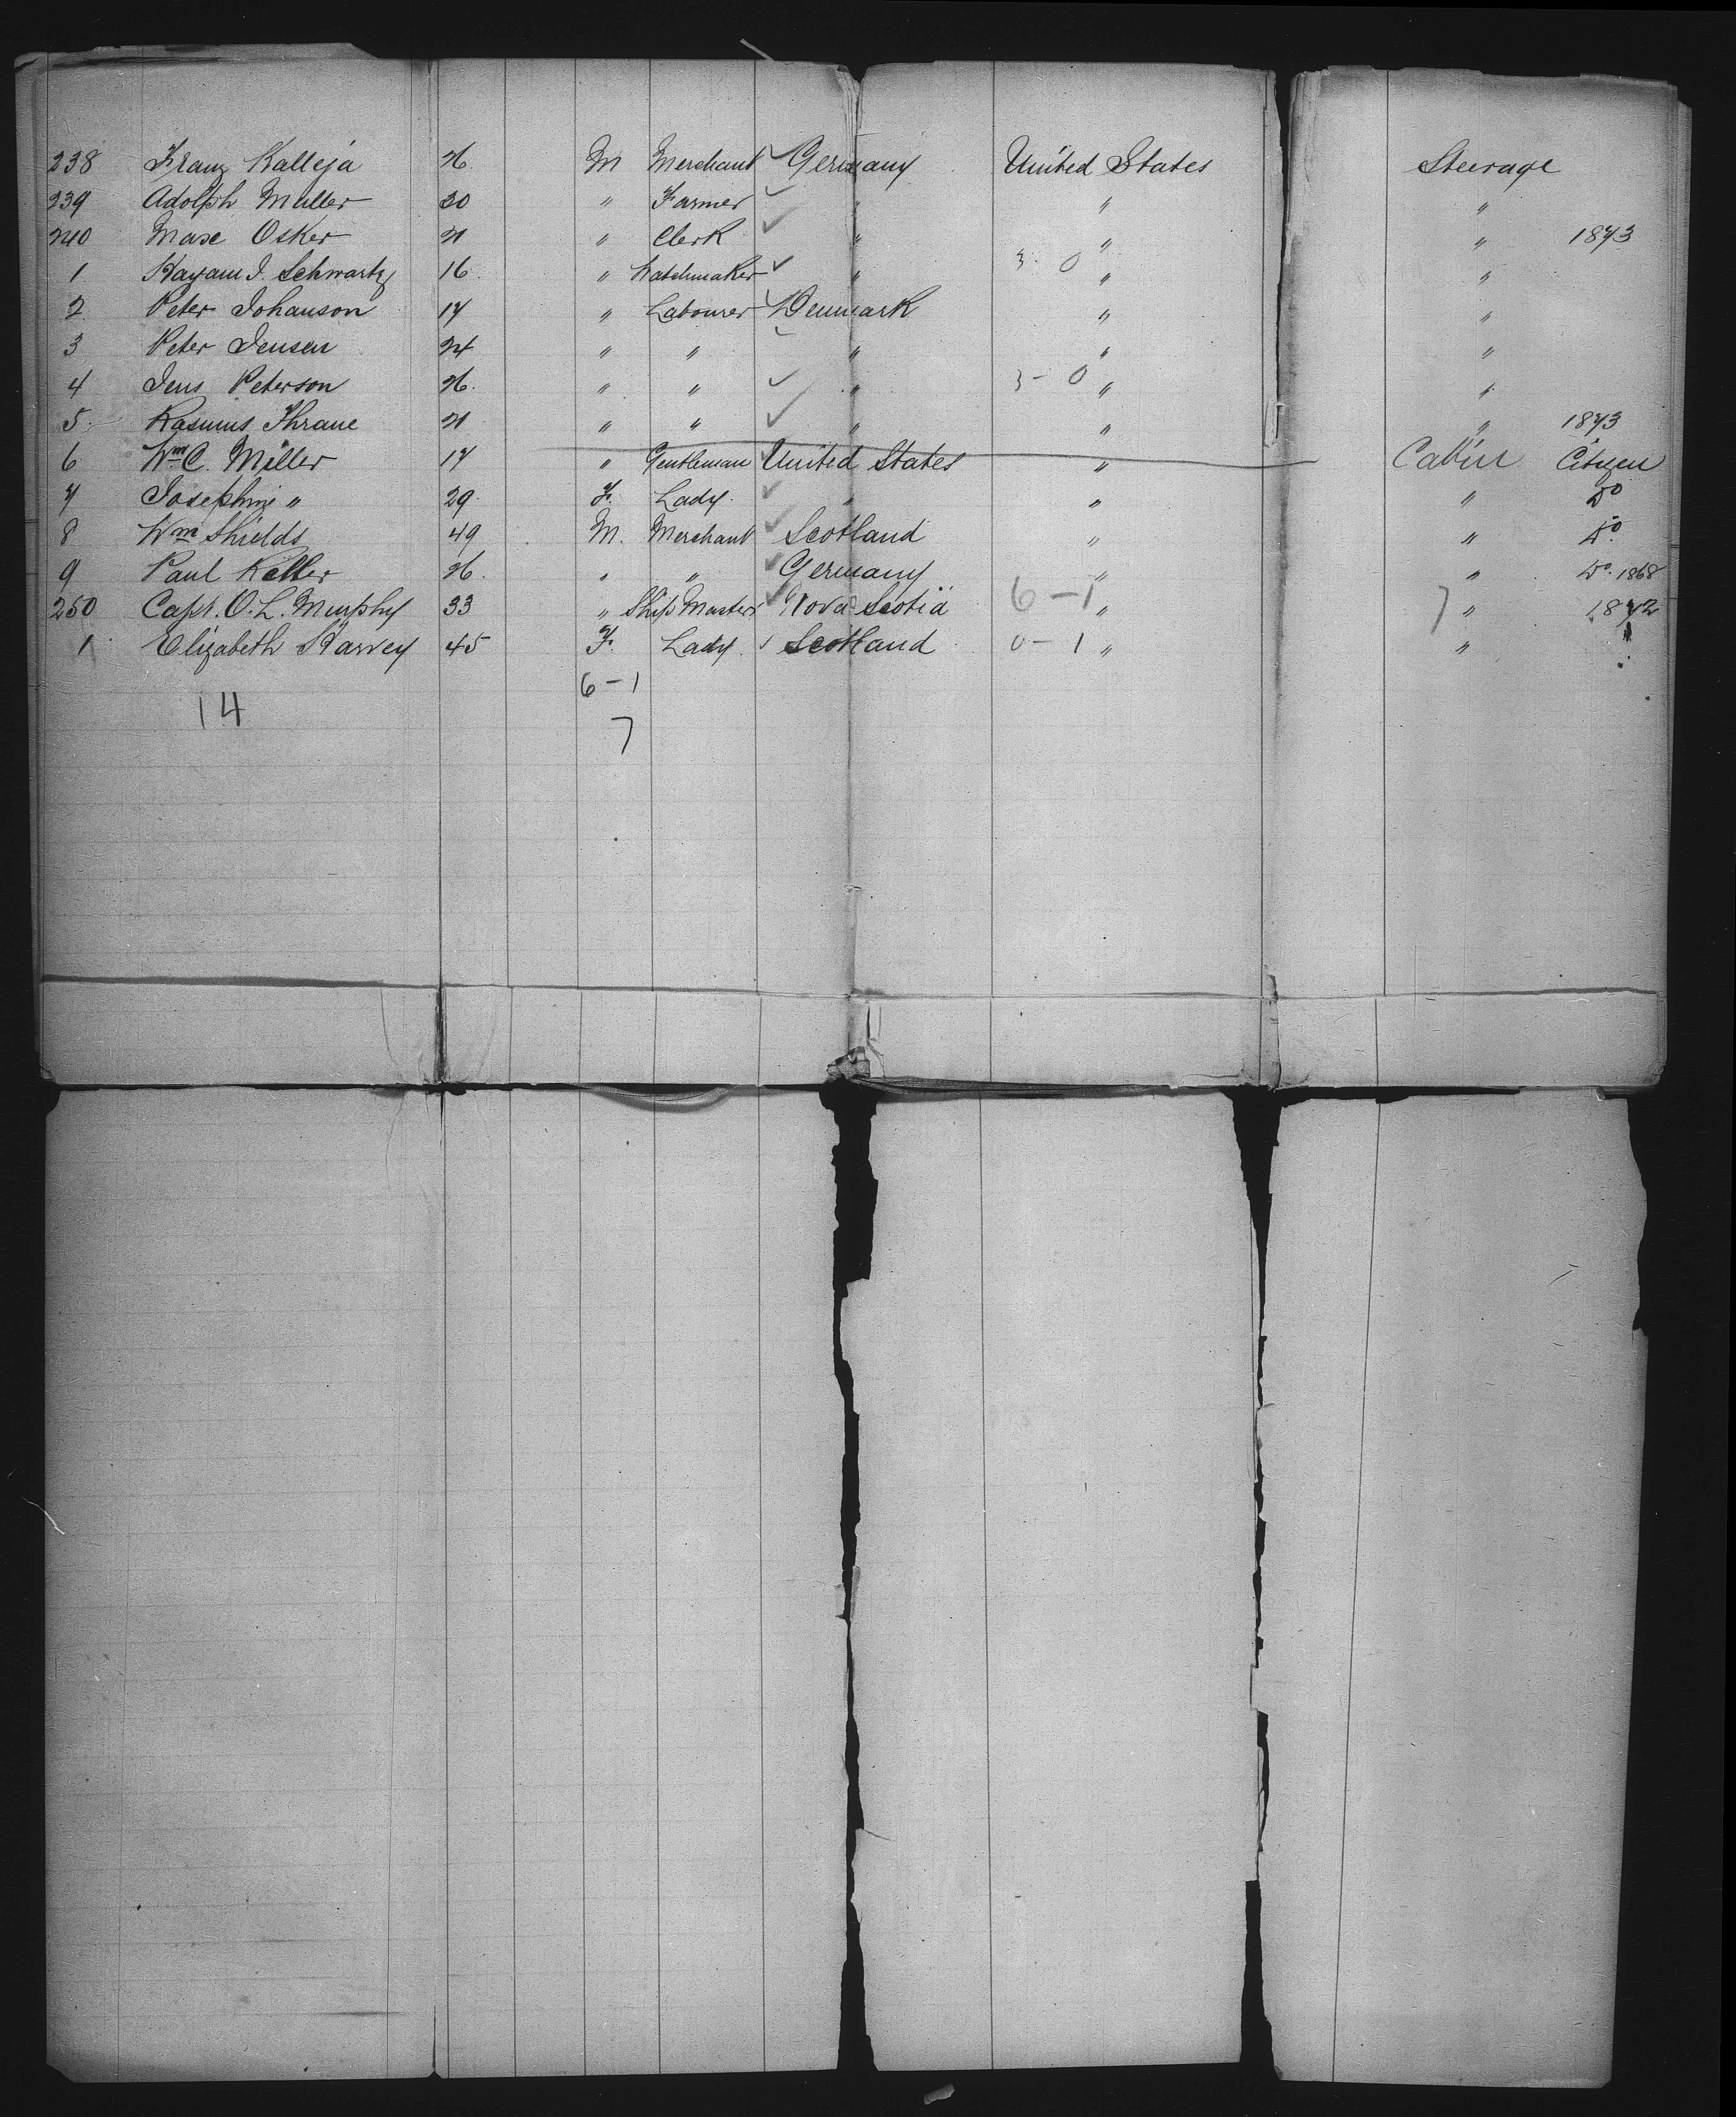 238 Franz Kalleja 26 M Merchant ✓ Germany United States Steerage
239 Adolph Muller 20 " Farmer ✓ " " "
240 Max Osker 21 " Clerk ✓ " " " 1873
1 Hayam I. Schwartz 16 " Watchmaker ✓ " 3-0 " "
2 Peter Johanson 17 " Labourer ✓ Denmark " "
3 Peter Jensen 24 " " ✓ " " "
4 Jens Peterson 26. " " ✓ " 3-0 " "
5 Rasmus Thrane 21 " " ✓ " " " 1873
6 Wm C. Miller 17 " Gentleman United States " Cabin Citizen
7 Josephine " 29. F. Lady. ✓ " " " Do
8 Wm Shields 49 M. Merchant ✓ Scotland " " Do.
9 Paul Keller 26. " " ✓ Germany " " Do. 1868
250 Capt. O. L. Murphy 33 " Ship Master ✓ Nova Scotia 6-1 " 7 " 1872
1 Elizabeth Harvey 45 F. Lady Scotland 0-1 " "
6-1
14
7